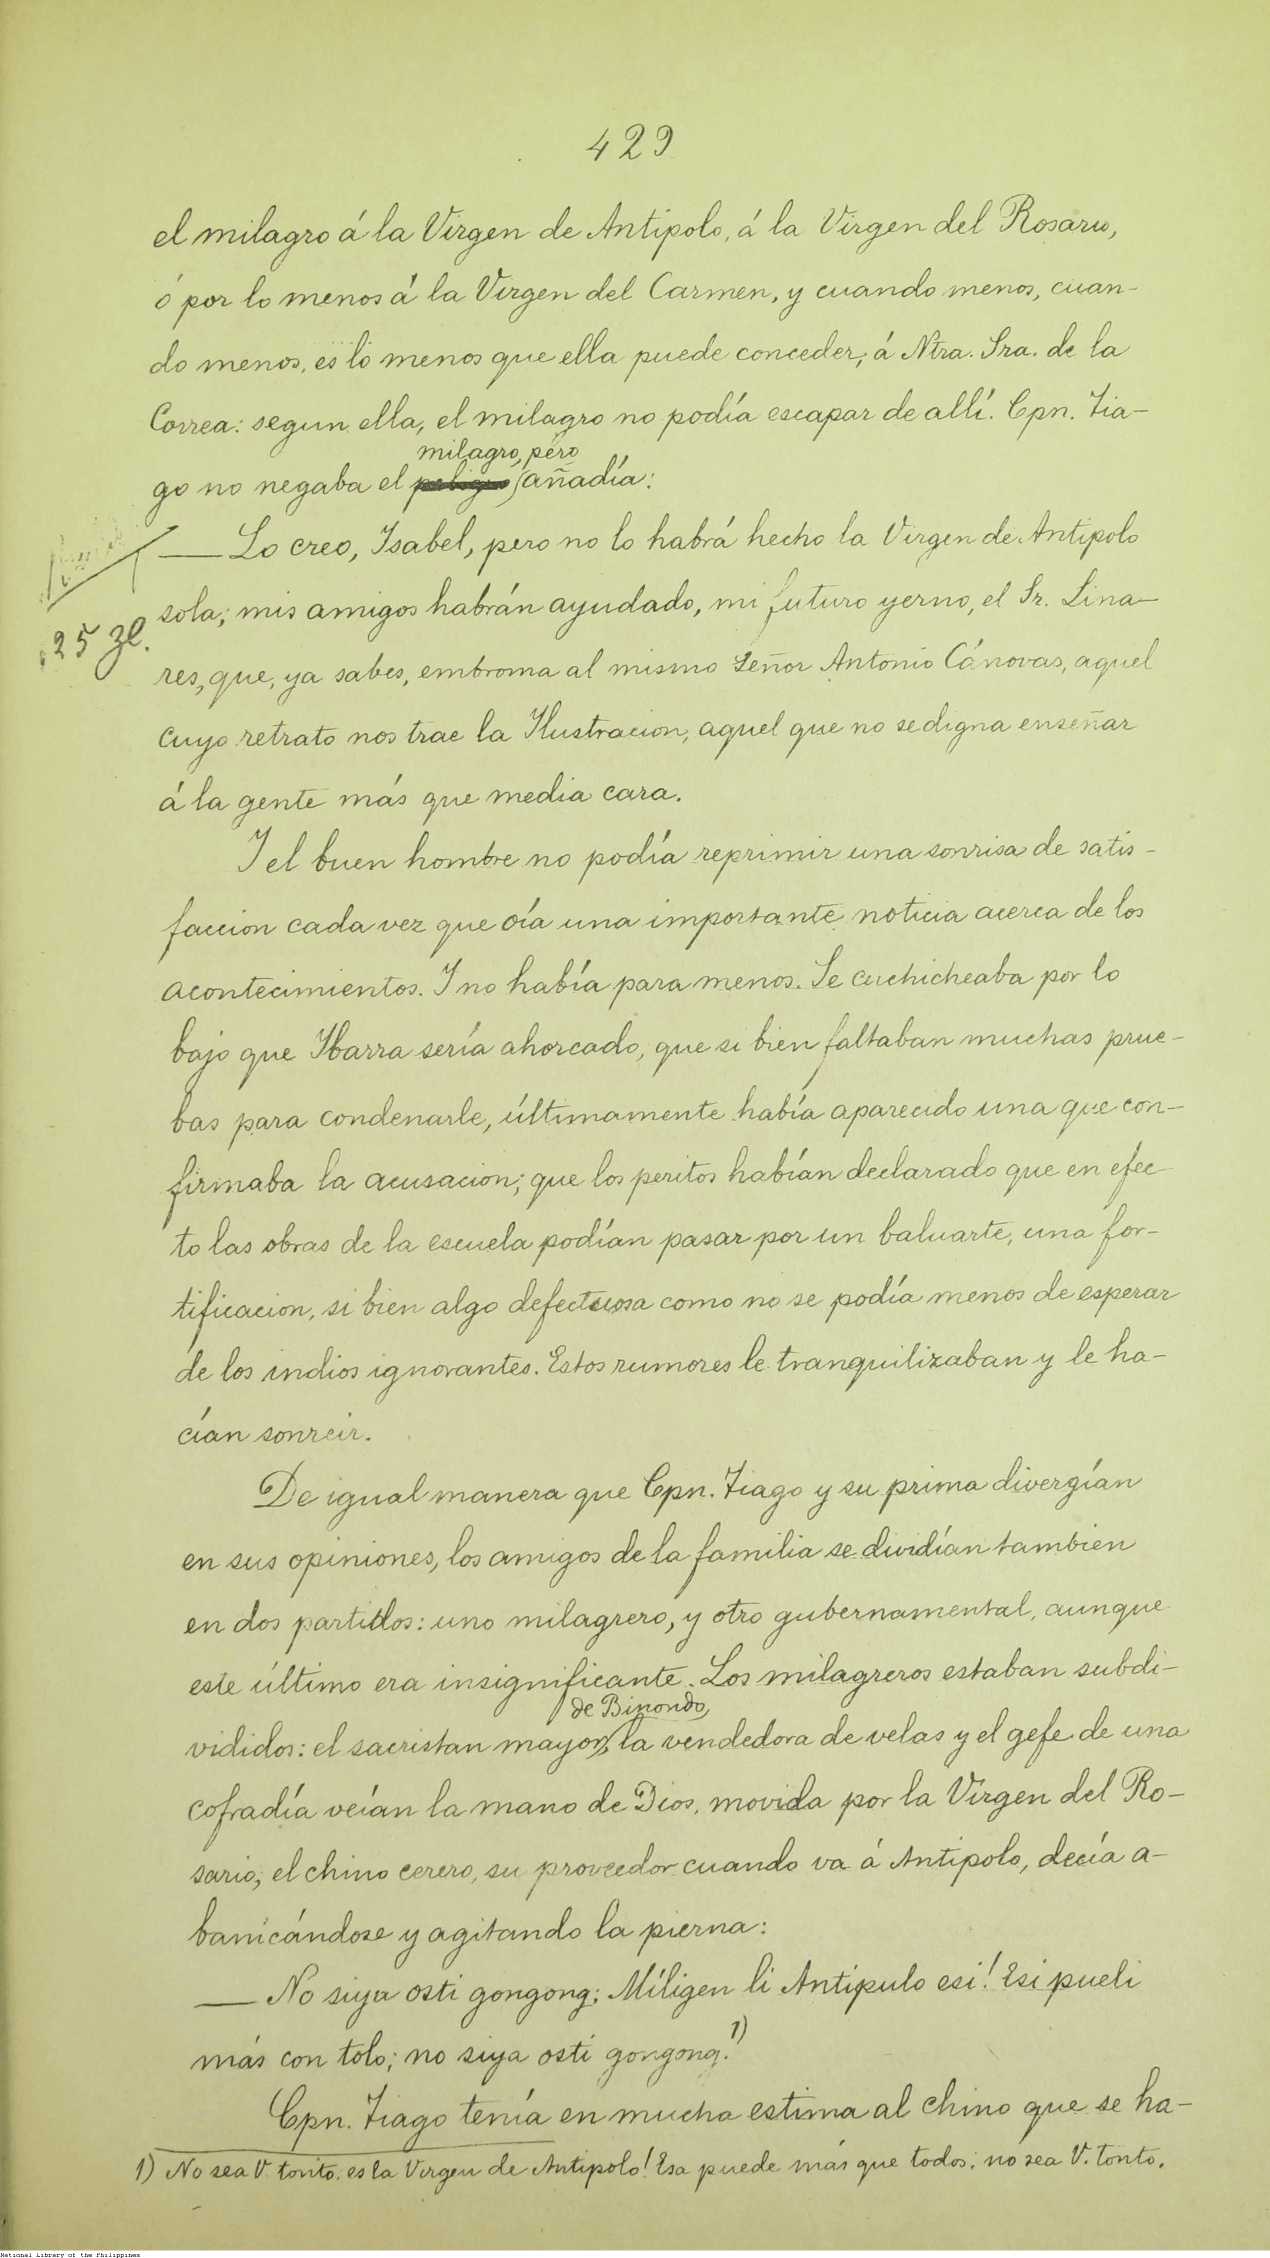 429
el milagro á la Virgen de Antipolo, á la Virgen del Rosario,
ó por lo menos á la Virgen del Carmen, y cuando menos, cuan-
do menos, es lo menos que ella puede conceder, á Ntra. Sra. de la
Correa: segun ella, el milagro no podía escapar de allí. Cpn. Tia-
milagro, pero
go no negaba el añadía:
— Lo creo, Isabel, pero no lo habrá hecho la Virgen de Antipolo
sola; mis amigos habrán ayudado, mi futuro yerno, el Sr. Lina-
25 ze.
res, que, ya sabes, embroma al mismo Señor Antonio Cánovas, aquel
cuyo retrato nos trae la Ilustracion, aquel que no se digna enseñar
á la gente más que media cara.
I el buen hombre no podía reprimir una sonrisa de satis-
faccion cada vez que oía una importante noticia acerca de los
acontecimientos. I no había para menos. Se cuchicheaba por lo
bajo que Ibarra sería ahorcado; que si bien faltaban muchas prue-
bas para condenarle, últimamente había aparecido una que con-
firmaba la acusacion; que los peritos habían declarado que en efec
to las obras de la escuela podían pasar por un baluarte, una for-
tificacion, si bien algo defectuosa como no se podía menos de esperar
de los indios ignorantes. Estos rumores le tranquilizaban y le ha-
cían sonreir.
De igual manera que Cpn. Tiago y su prima divergían
en sus opiniones, los amigos de la familia se dividían tambien
en dos partidos: uno milagrero, y otro gubernamental, aunque
este último era insignificante. Los milagreros estaban subdi-
de Binondo,
vididos: el sacristan mayor, la vendedora de velas y el gefe de una
cofradía veían la mano de Dios, movida por la Virgen del Ro-
sario; el chino cerero, su proveedor cuando va á Antipolo, decía a-
banicándose y agitando la pierna:
— No siya osti gongong; Míligen li Antipulo esi! Esi pueli
más con tolo; no siya osti gongong.1)
Cpn. Tiago tenía en mucha estima al chino que se ha-
1) No sea V. tonto, es la Virgen de Antipolo! Esa puede más que todos; no sea V. tonto.
National Library of the Philippines